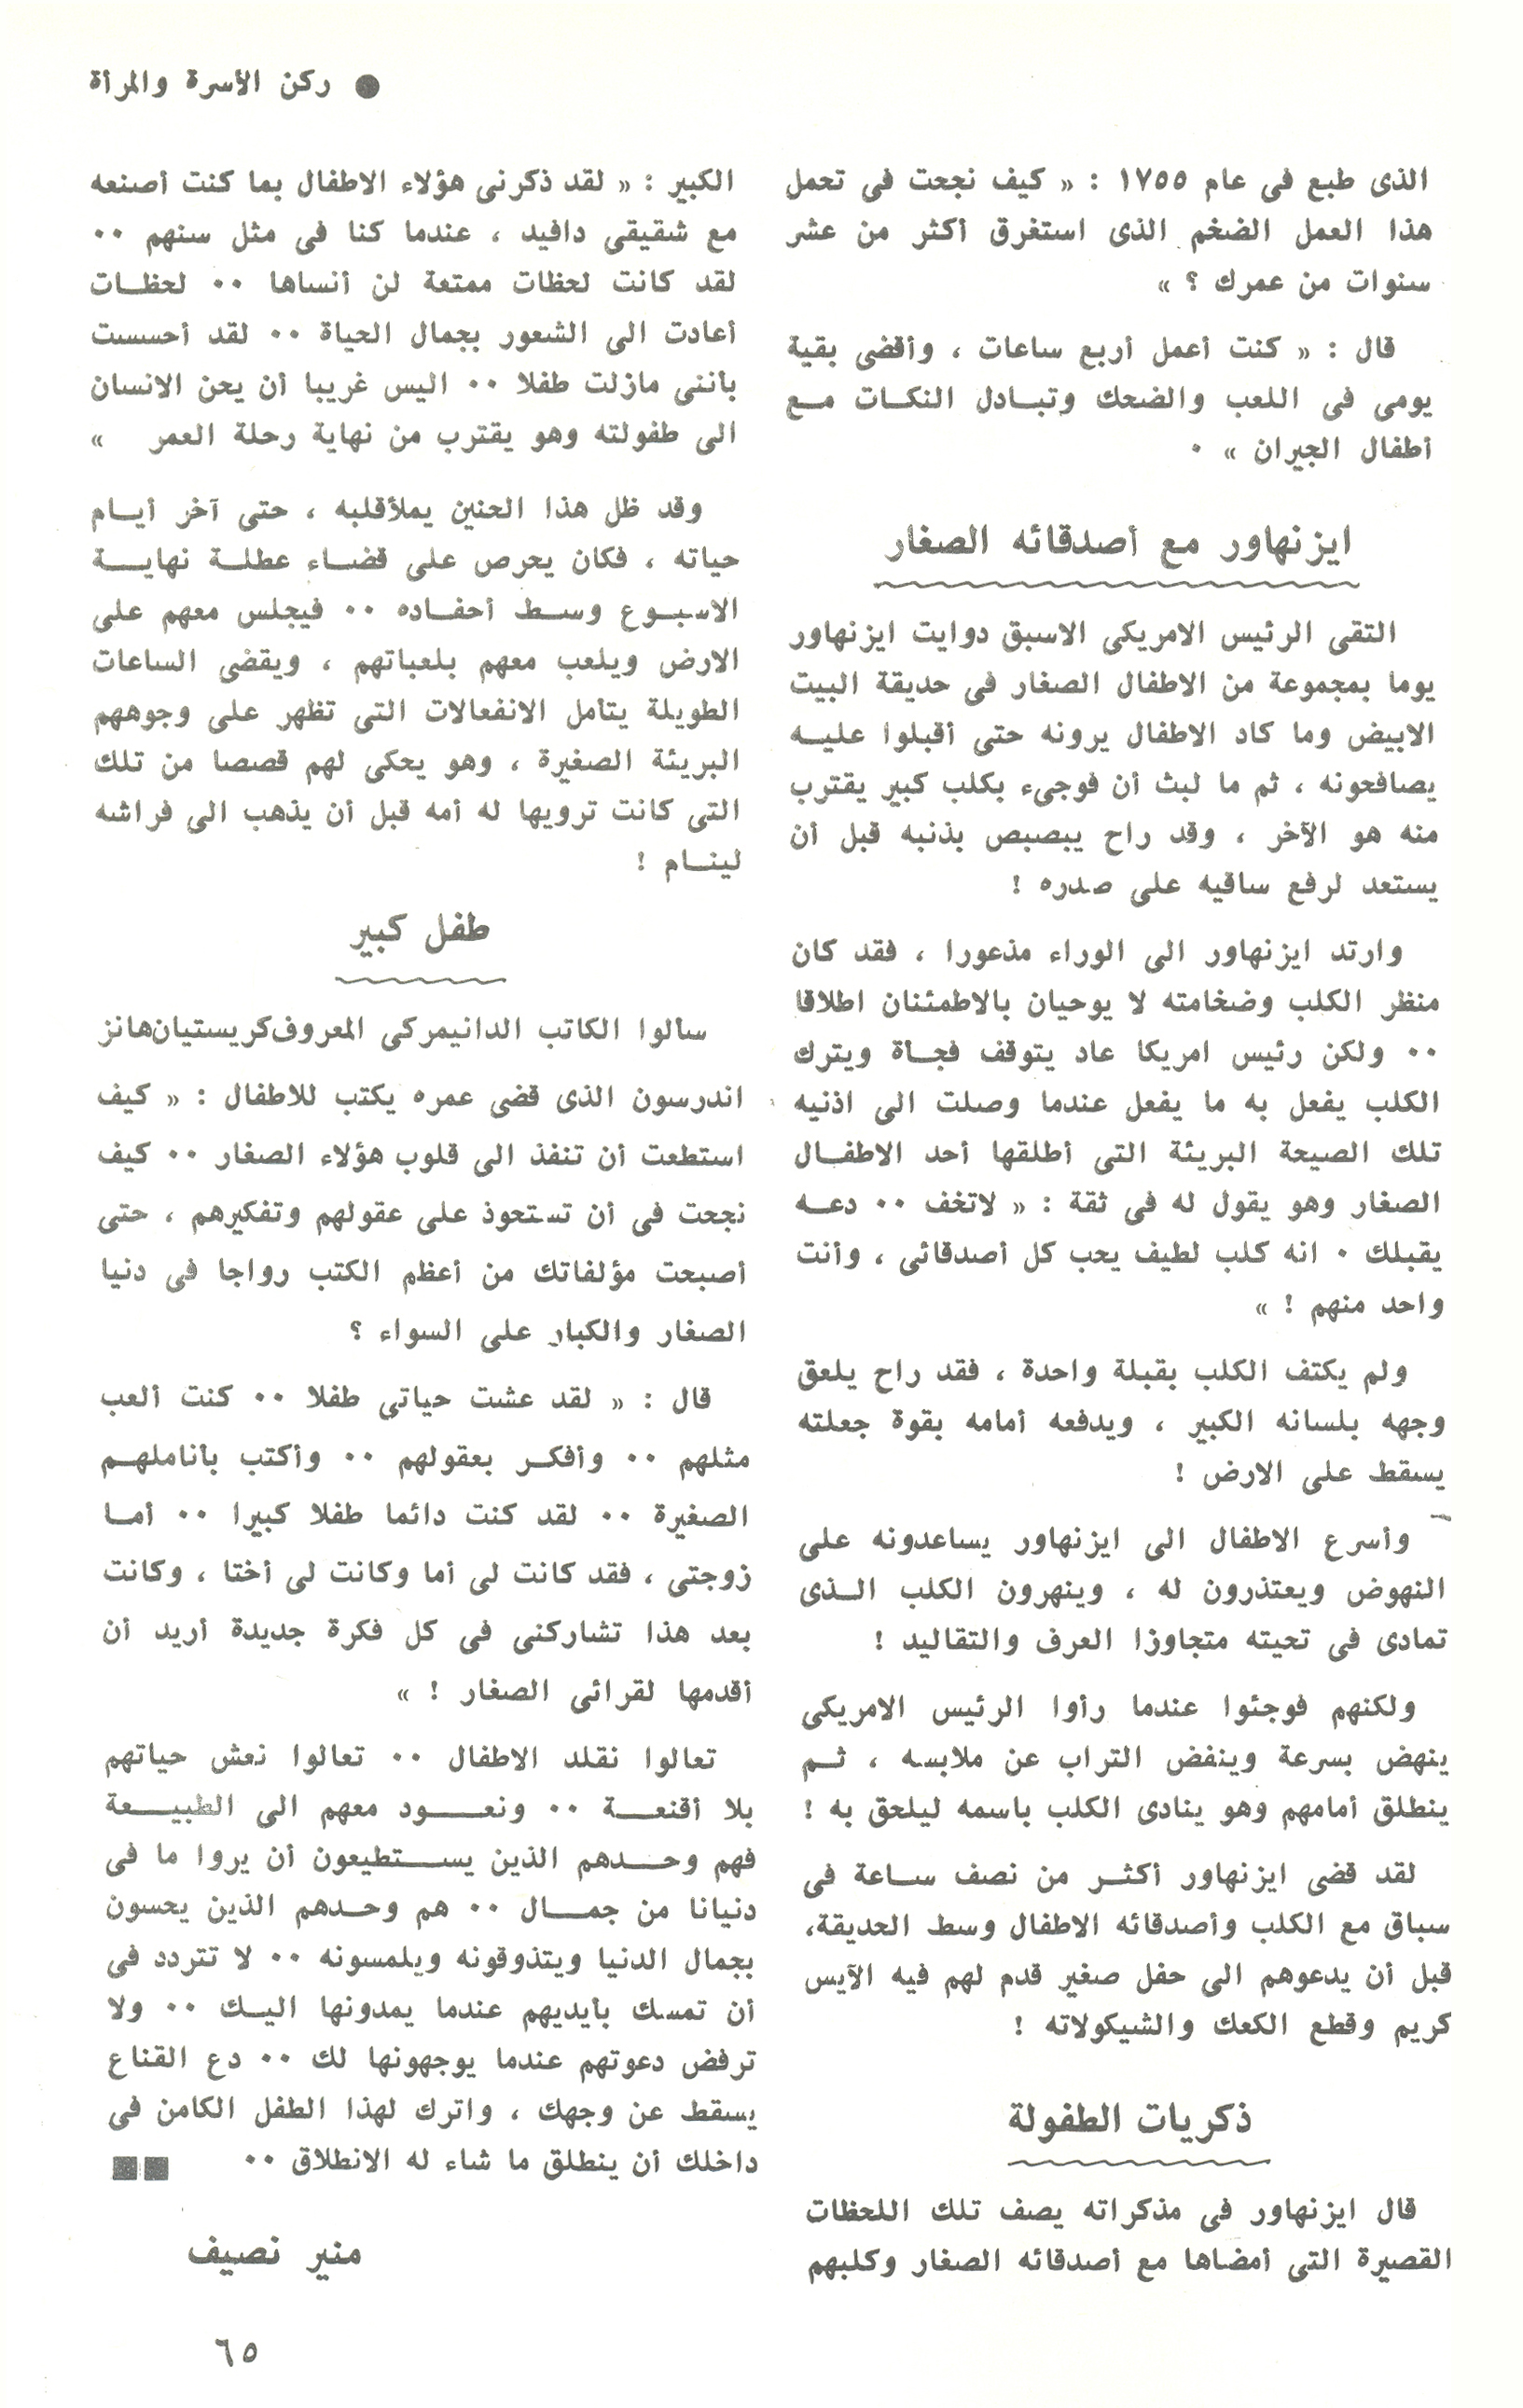 ● ركن الأسرة والمرأة
الذى طبع فى عام ١٧٥٥ : « كيف نجحت فى تحمل
هذا العمل الضخم الذى استغرق أكثر من عشر
سنوات من عمرك ؟ »
قال : « كنت أعمل أربع ساعات ، وأقضى بقية
يومى فى اللعب والضحك وتبـادل النكـات مـع
أطفال الجيران » ٠
ايزنهاور مع أصدقائه الصغار
التقى الرئيس الامريكى الاسبق دوايت ايزنهاور
يوما بمجموعة من الاطفال الصغار فى حديقة البيت
الابيض وما كاد الاطفال يرونه حتى أقبلوا عليـه
يصافحونه ، ثم ما لبث أن فوجىء بكلب كبير يقترب
منه هو الآخر ، وقد راح يبصبص بذنبه قبل أن
يستعد لرفع ساقيه على صدره !
وارتد ايزنهاور الى الوراء مذعورا ، فقد كان
منظر الكلب وضخامته لا يوحيان بالاطمئنان اطلاقا
٠٠ ولكن رئيس امريكا عاد يتوقف فجـأة ويترك
الكلب يفعل به ما يفعل عندما وصلت الى اذنيه
تلك الصيحة البريئة التى أطلقها أحد الاطفـال
الصغار وهو يقول له فى ثقة : « لاتخف ٠٠ دعـه
يقبلك ٠ انه كلب لطيف يحب كل أصدقائى ، وأنت
واحد منهم ! »
ولم يكتف الكلب بقبلة واحدة ، فقد راح يلعق
وجهه بلسانه الكبير ، ويدفعه أمامه بقوة جعلته
يسقط على الارض !
وأسرع الاطفال الى ايزنهاور يساعدونه على
النهوض ويعتذرون له ، وينهرون الكلب الـذى
تمادى فى تحيته متجاوزا العرف والتقاليد !
ولكنهم فوجئوا عندما رأوا الرئيس الامريكى
ينهض بسرعة وينفض التراب عن ملابسه ، ثـم
ينطلق أمامهم وهو ينادى الكلب باسمه ليلحق به !
لقد قضى ايزنهاور أكثـر من نصف سـاعة فى
سباق مع الكلب وأصدقائه الاطفال وسط الحديقة،
قبل أن يدعوهم الى حفل صغير قدم لهم فيه الآيس
كريم وقطع الكعك والشيكولاته !
ذكريات الطفولة
قال ايزنهاور فى مذكراته يصف تلك اللحظات
القصيرة التى أمضاها مع أصدقائه الصغار وكلبهم
الكبير : « لقد ذكرنى هؤلاء الاطفال بما كنت أصنعه
مع شقيقى دافيد ، عندما كنا فى مثل سنهم ٠٠
لقد كانت لحظات ممتعة لن أنساها ٠٠ لحظـات
أعادت الى الشعور بجمال الحياة ٠٠ لقد أحسست
بأننى مازلت طفلا ٠٠ اليس غريبا أن يحن الانسان
الى طفولته وهو يقترب من نهاية رحلة العمر »
وقد ظل هذا الحنين يملأقلبه ، حتى آخر أيـام
حياته ، فكان يحرص على قضـاء عطلـة نهايـة
الاسبـوع وسـط أحفـاده ٠٠ فيجلس معهم على
الارض ويلعب معهم بلعباتهم ، ويقضى الساعات
الطويلة يتأمل الانفعالات التى تظهر على وجوههم
البريئة الصغيرة ، وهو يحكى لهم قصصا من تلك
التى كانت ترويها له أمه قبل أن يذهب الى فراشه
لينـام !
طفل كبير
سألوا الكاتب الدانيمركى المعروف كريستيان هانز
اندرسون الذى قضى عمره يكتب للاطفال : « كيف
استطعت أن تنفذ الى قلوب هؤلاء الصغار ٠٠ كيف
نجحت فى أن تستحوذ على عقولهم وتفكيرهم ، حتى
أصبحت مؤلفاتك من أعظم الكتب رواجا فى دنيا
الصغار والكبار على السواء ؟
قال : « لقد عشت حياتى طفلا ٠٠ كنت ألعب
مثلهم ٠٠ وأفكـر بعقولهم ٠٠ وأكتب بأناملهـم
الصغيرة ٠٠ لقد كنت دائما طفلا كبيرا ٠٠ أمـا
زوجتى ، فقد كانت لى أما وكانت لى أختا ، وكانت
بعد هذا تشاركنى فى كل فكرة جديدة أريد أن
أقدمها لقرائى الصغار ! »
تعالوا نقلد الاطفال ٠٠ تعالوا نعش حياتهم
بلا أقنعـــة ٠٠ ونعـــود معهم الى الطبيـــعة
فهم وحـــدهم الذين يســـتطيعون أن يروا ما فى
دنيانا من جمـــال ٠٠ هم وحـدهم الذين يحسون
بجمال الدنيا ويتذوقونه ويلمسونه ٠٠ لا تتردد فى
أن تمسك بأيديهم عندما يمدونها اليـك ٠٠ ولا
ترفض دعوتهم عندما يوجهونها لك ٠٠ دع القناع
يسقط عن وجهك ، واترك لهذا الطفل الكامن فى
داخلك أن ينطلق ما شاء له الانطلاق ٠٠ ■■
منير نصيف
٦٥